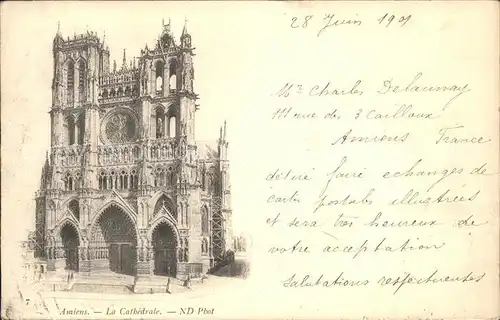 28 Juin 1901
Mr Charles Delaunay
111 rue des 3 Cailloux
Amiens France
désire faire echanges de
cartes postales illustrées
et sera très heureux de
votre acceptation
Salutations respectueuses
7 Amiens. — La Cathédrale. — ND Phot